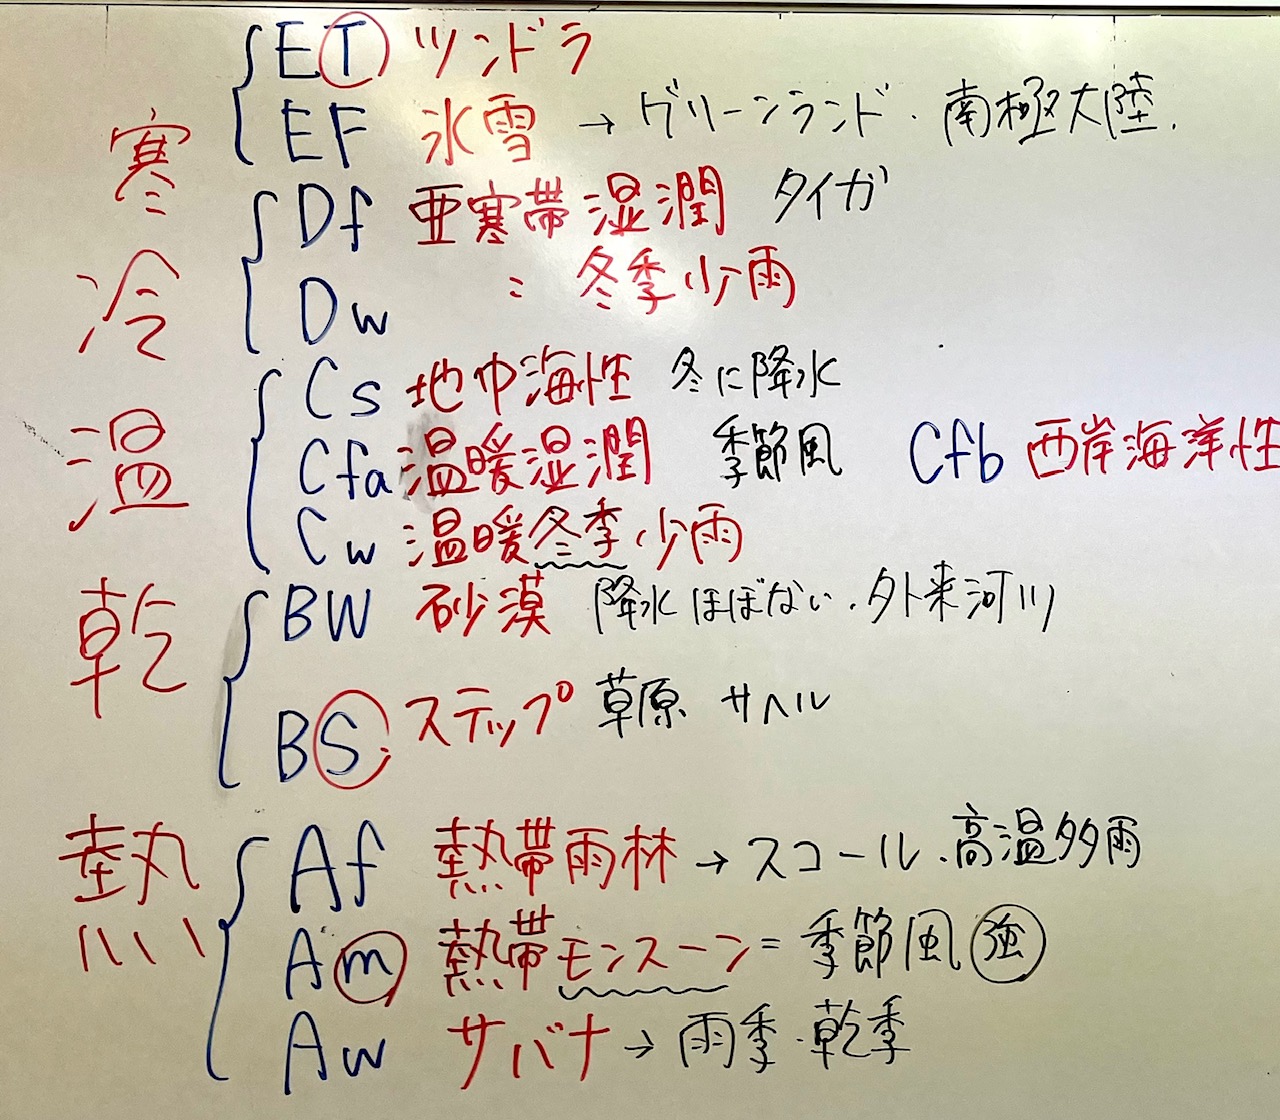 ET ツンドラ
EF 氷雪 → グリーンランド・南極大陸.
寒
Df 亜寒帯湿潤 タイガ
Dw 〃 冬季少雨
冷
Cs 地中海性 冬に降水
Cfa 温暖湿潤 季節風 Cfb 西岸海洋性
Cw 温暖冬季少雨
温
BW 砂漠 降水ほぼない.外来河川
BS ステップ 草原 サヘル
乾
Af 熱帯雨林 → スコール.高温多雨
Am 熱帯モンスーン = 季節風 強
Aw サバナ → 雨季・乾季
熱